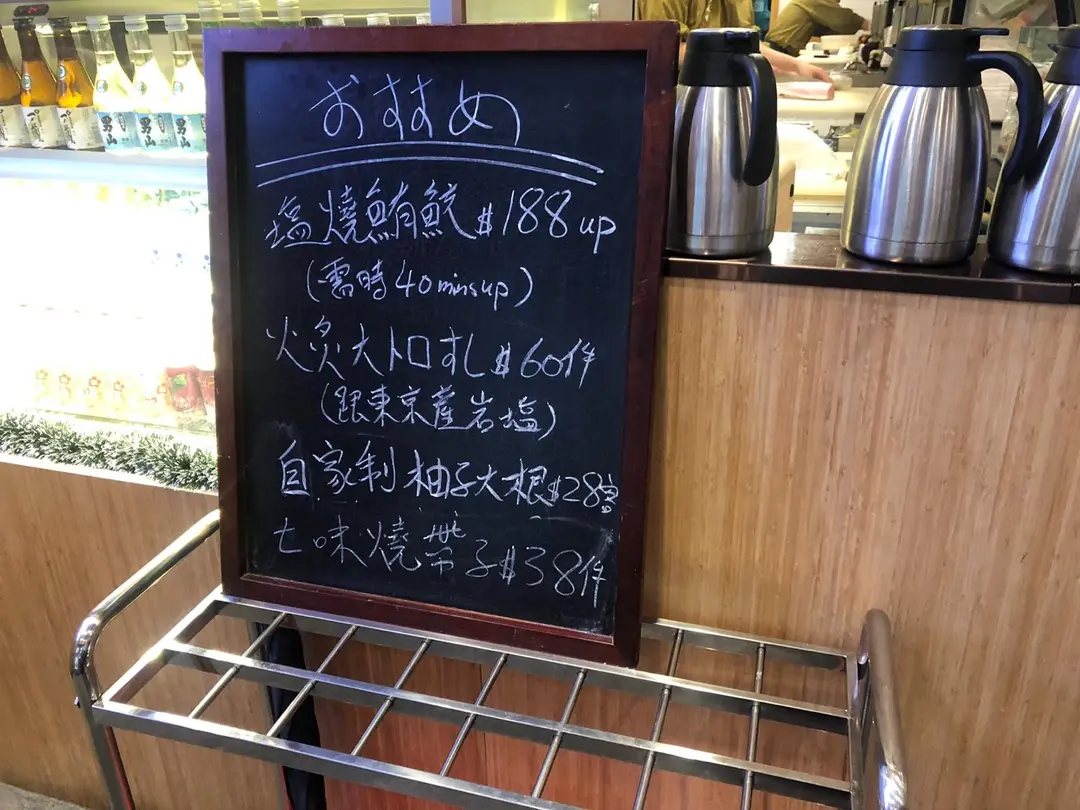 おすすめ
塩燒鮪鮫 $188 up
(需時40minsup)
火炙大トロすし $60件
(跟東京產岩塩)
自家制柚子大根 $28
七味燒帶子 $38件
男山
男山